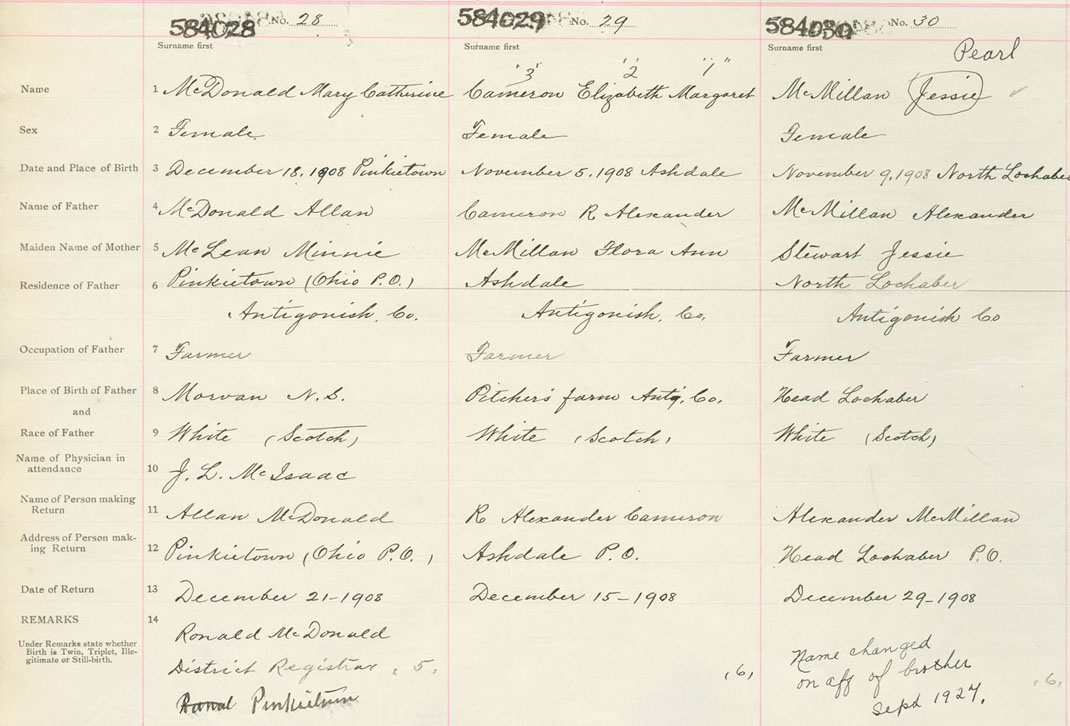 584028 No. 28
584029 No. 29
584030 No. 30
Surname first
Surname first
Surname first
Pearl
"3" "2" "1"
Name 1 McDonald Mary Catherine Cameron Elizabeth Margaret McMillan Jessie
Sex 2 Female Female Female
Date and Place of Birth 3 December 18, 1908 Pinkietown November 5, 1908 Ashdale November 9, 1908 North Lochaber
Name of Father 4 McDonald Allan Cameron R Alexander McMillan Alexander
Maiden Name of Mother 5 McLean Minnie McMillan Flora Ann Stewart Jessie
Residence of Father 6 Pinkietown (Ohio P.O.) Ashdale North Lochaber
Antigonish Co. Antigonish Co. Antigonish Co
Occupation of Father 7 Farmer Farmer Farmer
Place of Birth of Father 8 Morvan N.S. Pitcher's farm Antig. Co. Head Lochaber
and
Race of Father 9 White (Scotch) White (Scotch) White (Scotch)
Name of Physician in
attendance 10 J. L. McIsaac
Name of Person making
Return 11 Allan McDonald R Alexander Cameron Alexander McMillan
Address of Person mak-
ing Return 12 Pinkietown (Ohio P.O.) Ashdale P.O. Head Lochaber P.O.
Date of Return 13 December 21-1908 December 15-1908 December 29-1908
REMARKS 14
Under Remarks state whether
Birth is Twin, Triplet, Ille-
gitimate or Still-birth.
Ronald McDonald
District Registrar (5)
Pinkietown
(6)
Name changed
on aff of brother
1927.
(6)